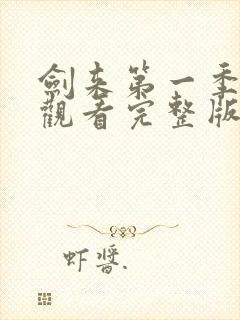 劍来第一季
觀看完整版
虾醬.